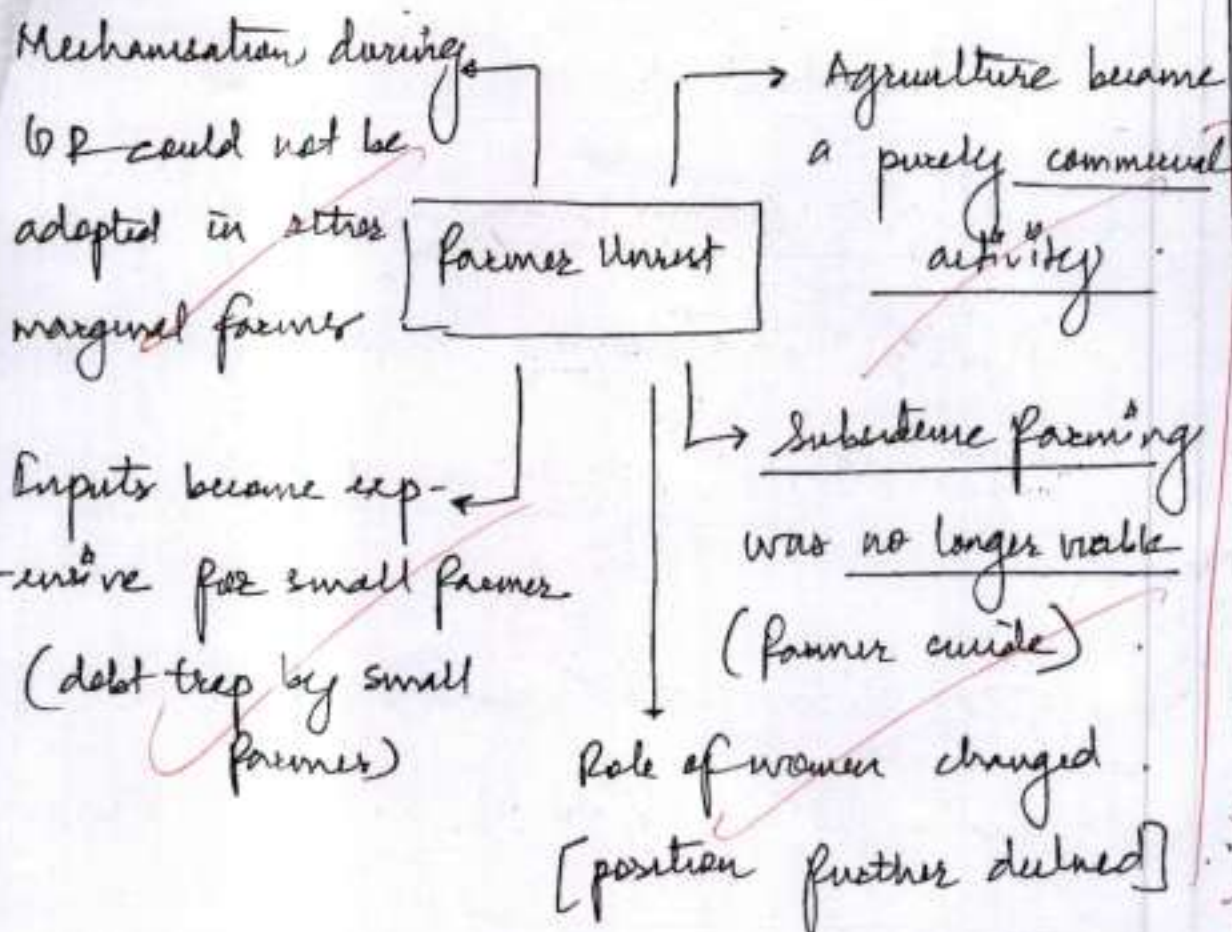 Mechanisation during
GR could not be
adopted in other
marginal farmer
Agriculture became
a purely commercial
activity.
Farmer Unrest
Inputs became exp-
-ensive for small farmer
(debt trap by small
farmers)
Subsistence farming
was no longer viable
(farmer suicide).
Role of women changed.
[position further declined]